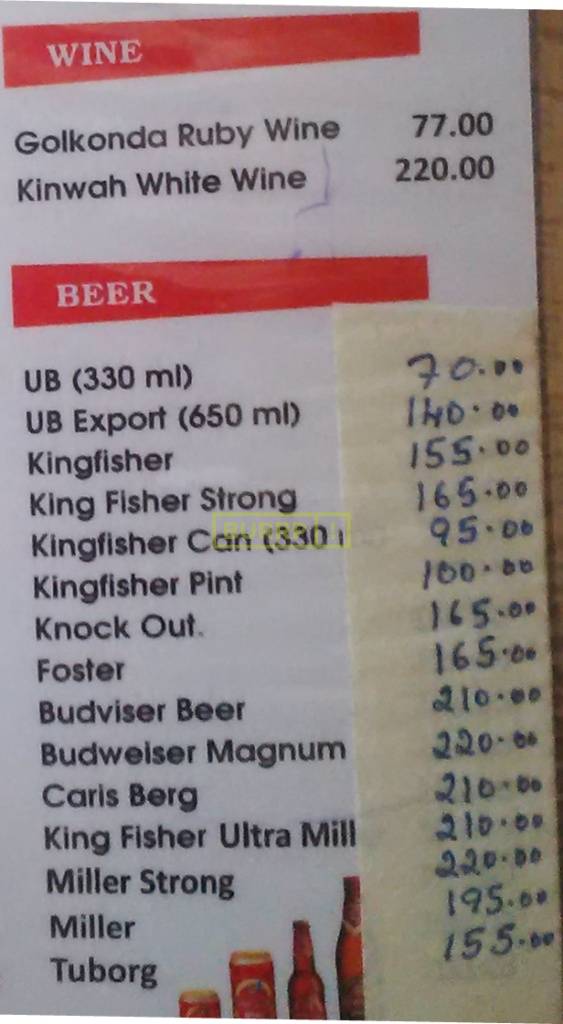 WINE
Golkonda Ruby Wine 77.00
Kinwah White Wine 220.00
BEER
UB (330 ml) 70.00
UB Export (650 ml) 140.00
Kingfisher 155.00
King Fisher Strong 165.00
Kingfisher Can (330 95.00
Kingfisher Pint 100.00
Knock Out. 165.00
Foster 165.00
Budviser Beer 210.00
Budweiser Magnum 220.00
Carls Berg 210.00
King Fisher Ultra Mill 210.00
Miller Strong 220.00
Miller 195.00
Tuborg 155.00